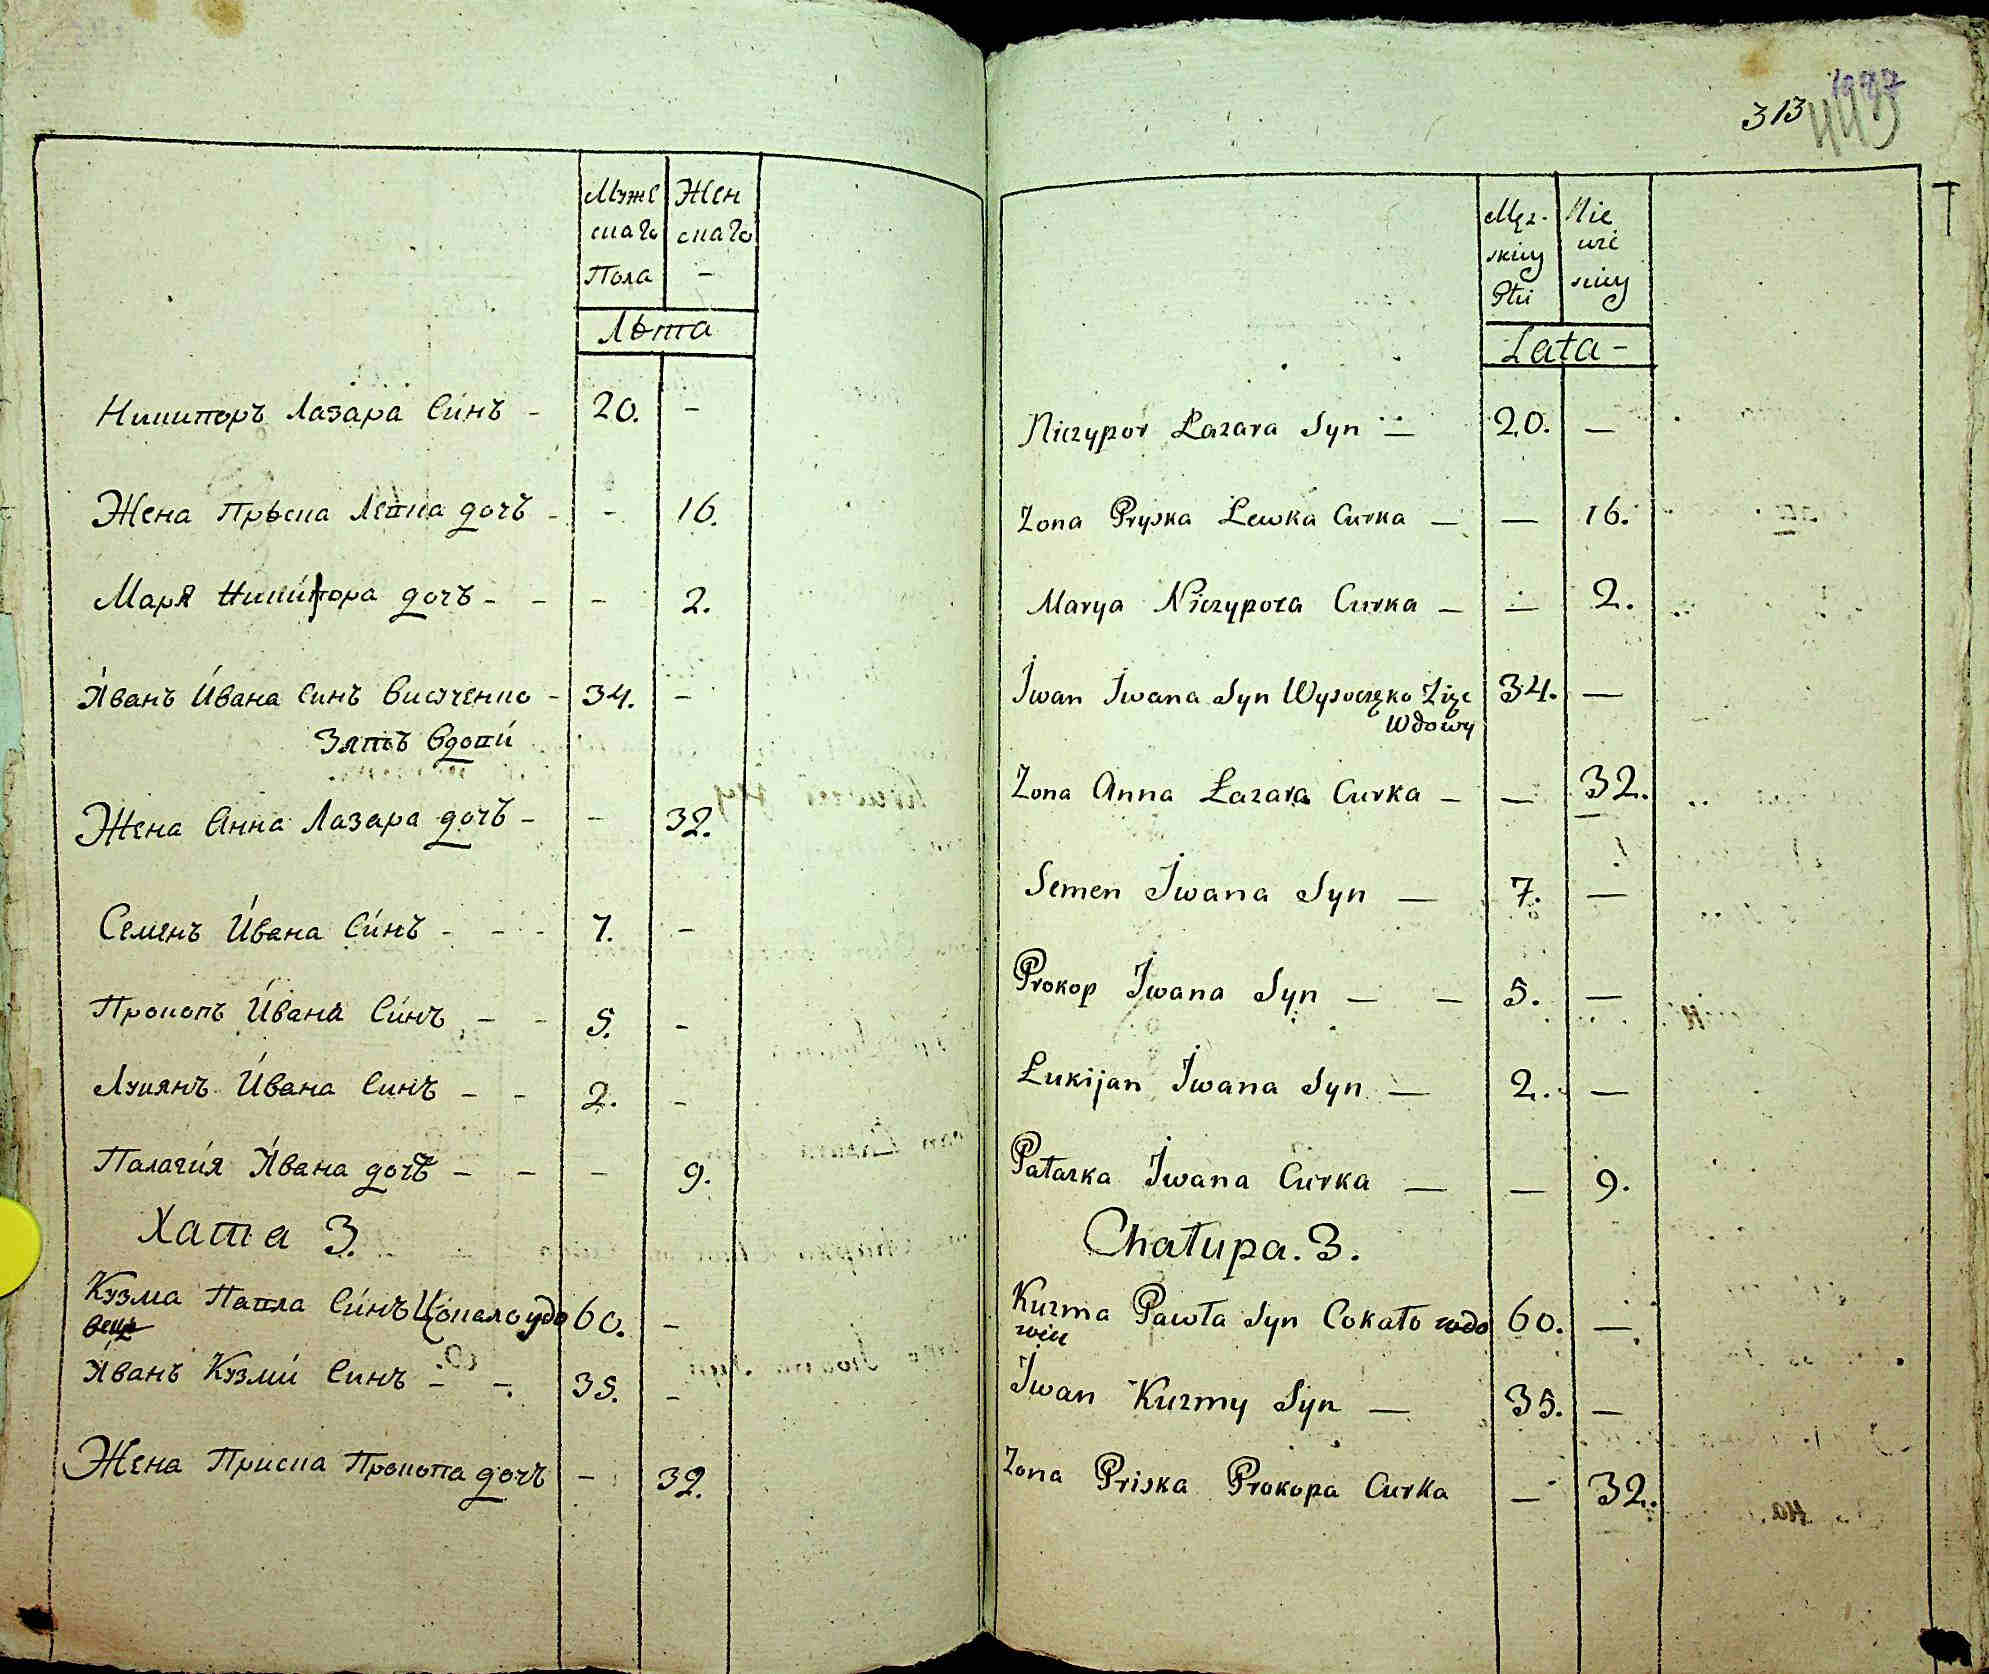 Муже Жен
скаго скаго
Пола -
Лѣта
Никипоръ Лазара Си́нъ - 20. -
Жена Прѣска Левка дочъ - - 16.
Маря Ники́пора дочъ - - - 2.
И́ванъ И́вана Синъ Височенко - 34. -
Зятъ Вдови́
Жена Анна Лазара дочъ - - 32.
Семенъ И́вана Си́нъ - - - 7. -
Прокопъ И́вана Си́нъ - - 5. -
Лукянъ И́вана Синъ - - 2. -
Палаги́я И́вана дочъ - - - 9.
Хата 3.
Кузма Павла Си́нъ Цокало удо 60. -
вецъ
И́ванъ Кузми́ Синъ - - 35. -
Жена Приска Прокопа дочъ - 32.
313 443
Męz- Nie
skiey wie
Płci sciey
Lata -
Niczypor Łazara Syn — 20. —
Zona Pryska Lewka Curka — — 16.
Marya Niczypora Curka — — 2.
Iwan Iwana Syn Wysoczęko Zięc 34. —
Wdowy
Zona Anna Łazara Curka — — 32.
Semen Iwana Syn — 7. —
Prokop Iwana Syn — — 5. —
Łukijan Iwana Syn — 2. —
Pałazka Iwana Curka — — 9.
Chałupa. 3.
Kuzma Pawła Syn Cokało wdo 60. —
wiec
Iwan Kuzmy Syn — 35. —
Zona Priska Prokopa Curka — 32.